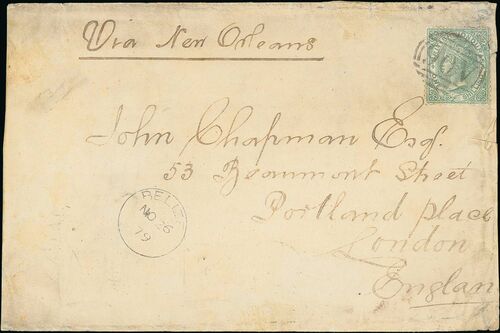 Via New Orleans
John Chapman Esq.
53 Beaumont Street
Portland place
London
Englan
BELIZE
NO 26
79